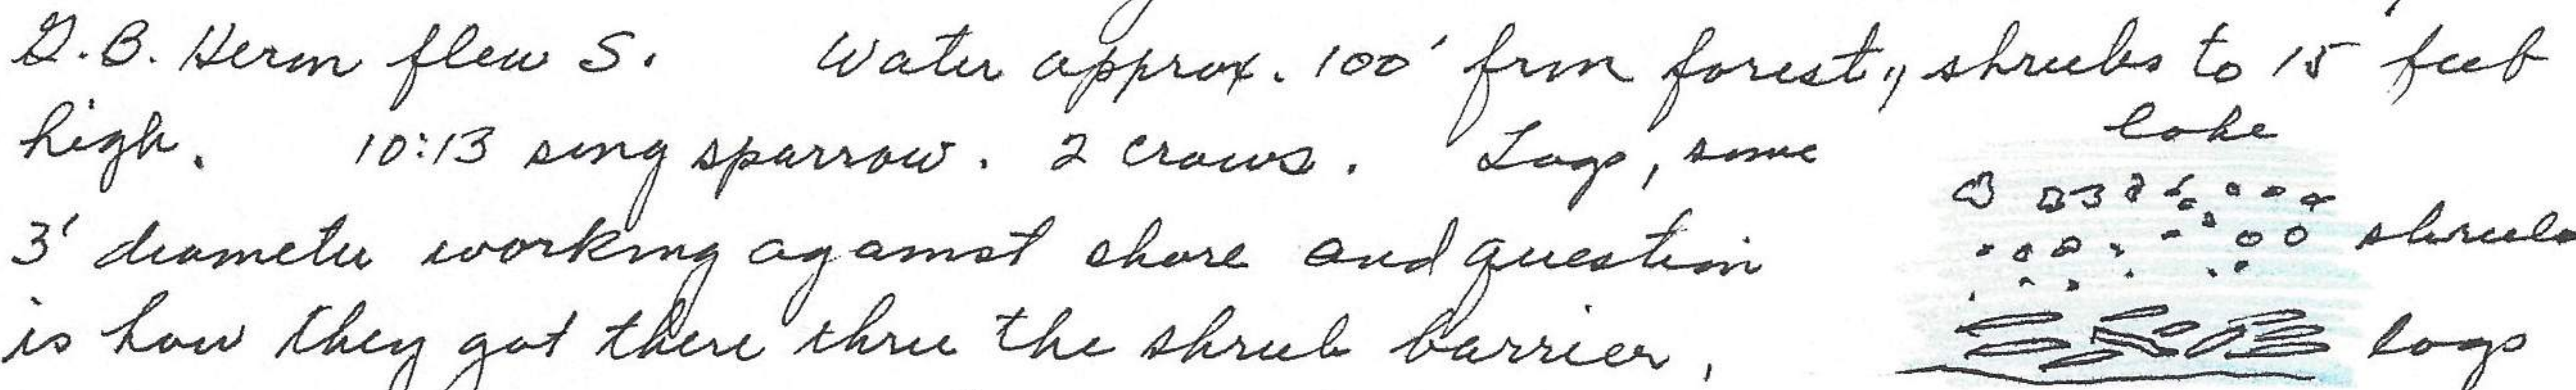 G.B. Hern flew S. Water approx. 100' frm forest, shrubs to 15 feet
high. 10:13 song sparrow. 2 crows. Logs, some
lake
3' diameter working against shore and question
shrubs
is how they got there thru the shrub barrier.
logs